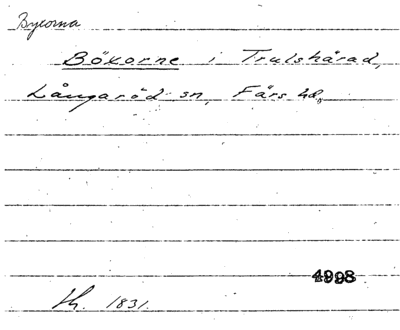 Byeorna
Bökorne i Trulshärad,
Långaröd sn, Färs hd,
4998
1831.